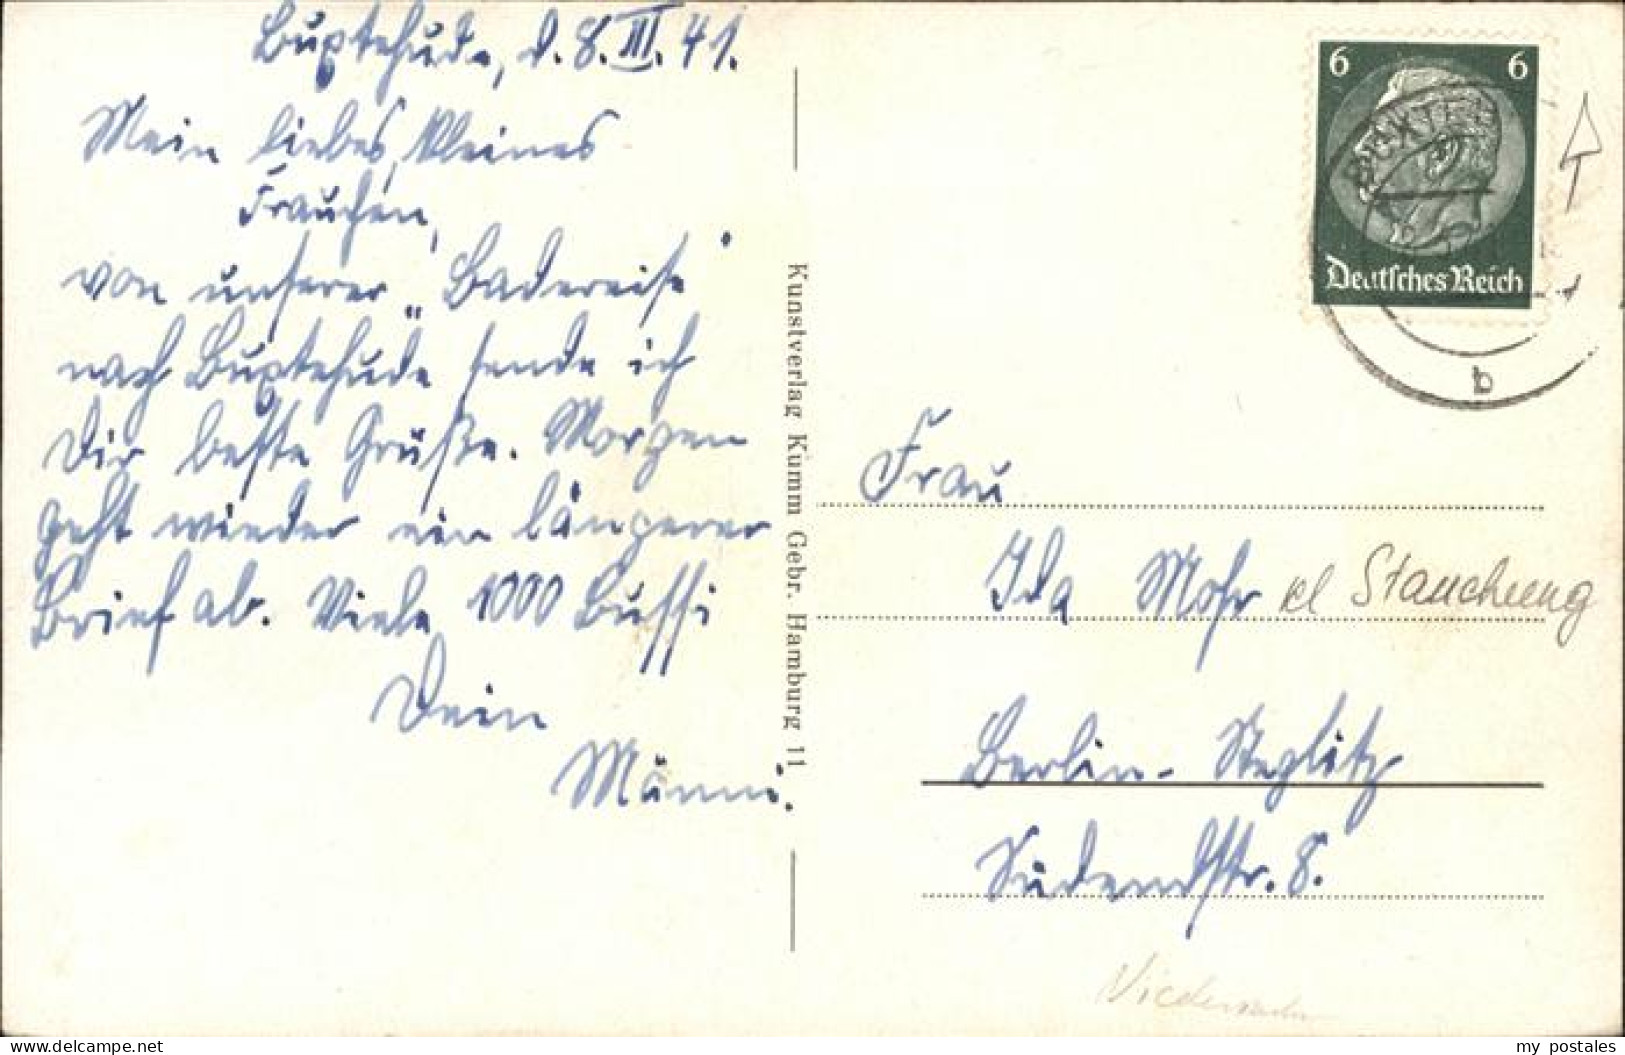 Buxtehude, d. 8. III. 41.
Mein liebes, kleines
Frauchen,
von unserer „Badereise"
nach Buxtehude sende ich
Dir beste Grüße. Morgen
geht wieder ein längerer
Brief ab. Viele 1000 Bussi
Dein
Männi.
Kunstverlag Kumm Gebr. Hamburg 11
6 6
Deutsches Reich
BUXTEH
b
Frau
Ida Mohr
kl Stauchung
Berlin-Steglitz
Südendstr. 8.
my postales